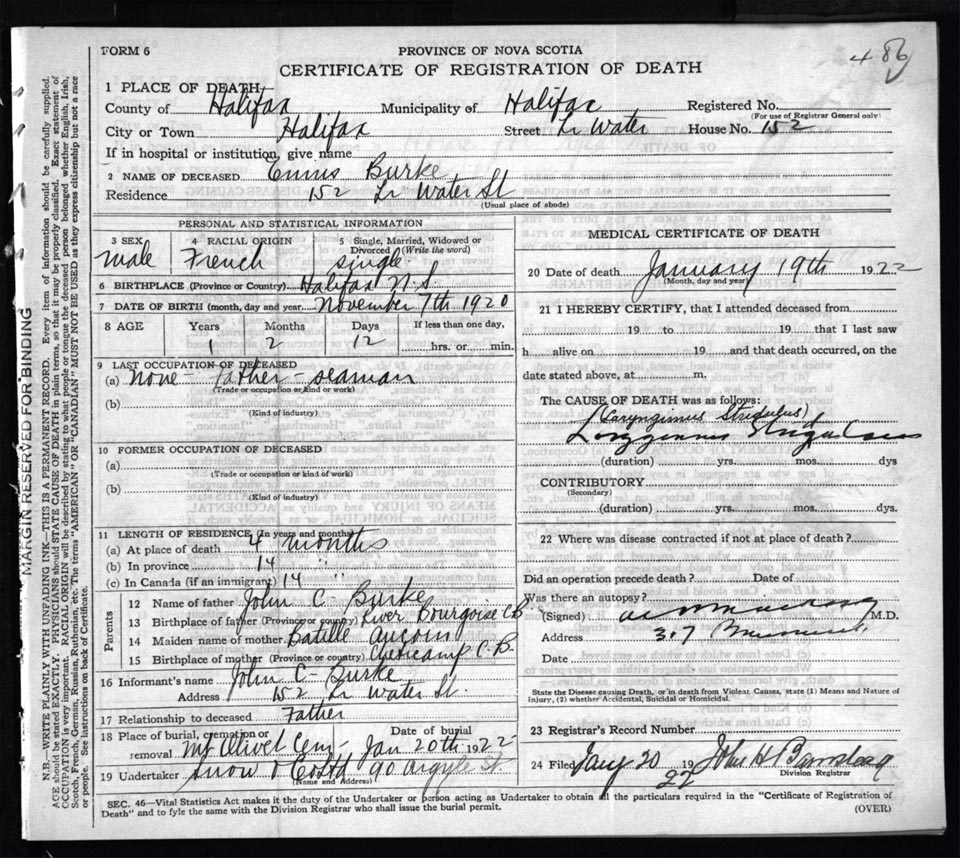 FORM 6
PROVINCE OF NOVA SCOTIA
486
CERTIFICATE OF REGISTRATION OF DEATH
1 PLACE OF DEATH
County of Halifax Municipality of Halifax Registered No.
(For use of Registrar General only)
City or Town Halifax Street Lr Water House No. 152
If in hospital or institution, give name
2 NAME OF DECEASED Burke
Residence 152 Lr Water St
(Usual place of abode)
PERSONAL AND STATISTICAL INFORMATION
3 SEX 4 RACIAL ORIGIN 5 Single, Married, Widowed or
Divorced (Write the word)
male French single
6 BIRTHPLACE (Province or Country) Halifax N.S.
7 DATE OF BIRTH (month, day and year) November 7th 1920
8 AGE Years Months Days If less than one day,
1 2 12 hrs. or min.
9 LAST OCCUPATION OF DECEASED
(a) None - Father - seaman
(Trade or occupation or kind or work)
(b)
(Kind of industry)
10 FORMER OCCUPATION OF DECEASED
(a)
(Trade or occupation or kind of work)
(b)
(Kind of industry)
11 LENGTH OF RESIDENCE (In years and months)
(a) At place of death 4 months
(b) In province 14 "
(c) In Canada (if an immigrant) 14 "
Parents
12 Name of father John C - Burke
13 Birthplace of father (Province or country) River Bourgoise CB
14 Maiden name of mother Aucoin
15 Birthplace of mother (Province or country) Cheticamp C.B.
16 Informant's name John C - Burke
Address 152 Lr Water St.
17 Relationship to deceased Father
18 Place of burial, cremation or Date of burial
removal Mt Olivet Cem - Jan 20th 1922
19 Undertaker Snow & Co Ltd 90 Argyle St.
(Name and address)
MEDICAL CERTIFICATE OF DEATH
20 Date of death January 19th 1922
(Month, day and year)
21 I HEREBY CERTIFY, that I attended deceased from
19 to 19 that I last saw
h alive on 19 and that death occurred, on the
date stated above, at m.
The CAUSE OF DEATH was as follows:
(Laryngimus Stridulus)
(duration) yrs. mos. dys
CONTRIBUTORY
(Secondary)
(duration) yrs. mos. dys.
22 Where was disease contracted if not at place of death?
Did an operation precede death? Date of
Was there an autopsy?
(Signed) M.D.
Address 307
Date
State the Disease causing Death, or in death from Violent Causes, state (1) Means and Nature of
Injury, (2) whether Accidental, Suicidal or Homicidal.
23 Registrar's Record Number
24 Filed Jany 20 1922 John H
Division Registrar
SEC. 46—Vital Statistics Act makes it the duty of the Undertaker or person acting as Undertaker to obtain all the particulars required in the "Certificate of Registration of
Death" and to fyle the same with the Division Registrar who shall issue the burial permit.
(OVER)
MARGIN RESERVED FOR BINDING
N.B.—WRITE PLAINLY WITH UNFADING INK—THIS IS A PERMANENT RECORD. Every item of information should be carefully supplied.
AGE should be stated EXACTLY. PHYSICIANS should STATE CAUSE OF DEATH in plain terms, so that it may be properly classified. Exact statement of
OCCUPATION is very important. RACIAL ORIGIN will be described by stating to what people or tongue the deceased person belonged whether English, Irish,
Scotch, French, German, Russian, Ruthenian, etc. The terms "AMERICAN" OR "CANADIAN" MUST NOT BE USED as they express citizenship but not a race
or people. See instructions on back of Certificate.